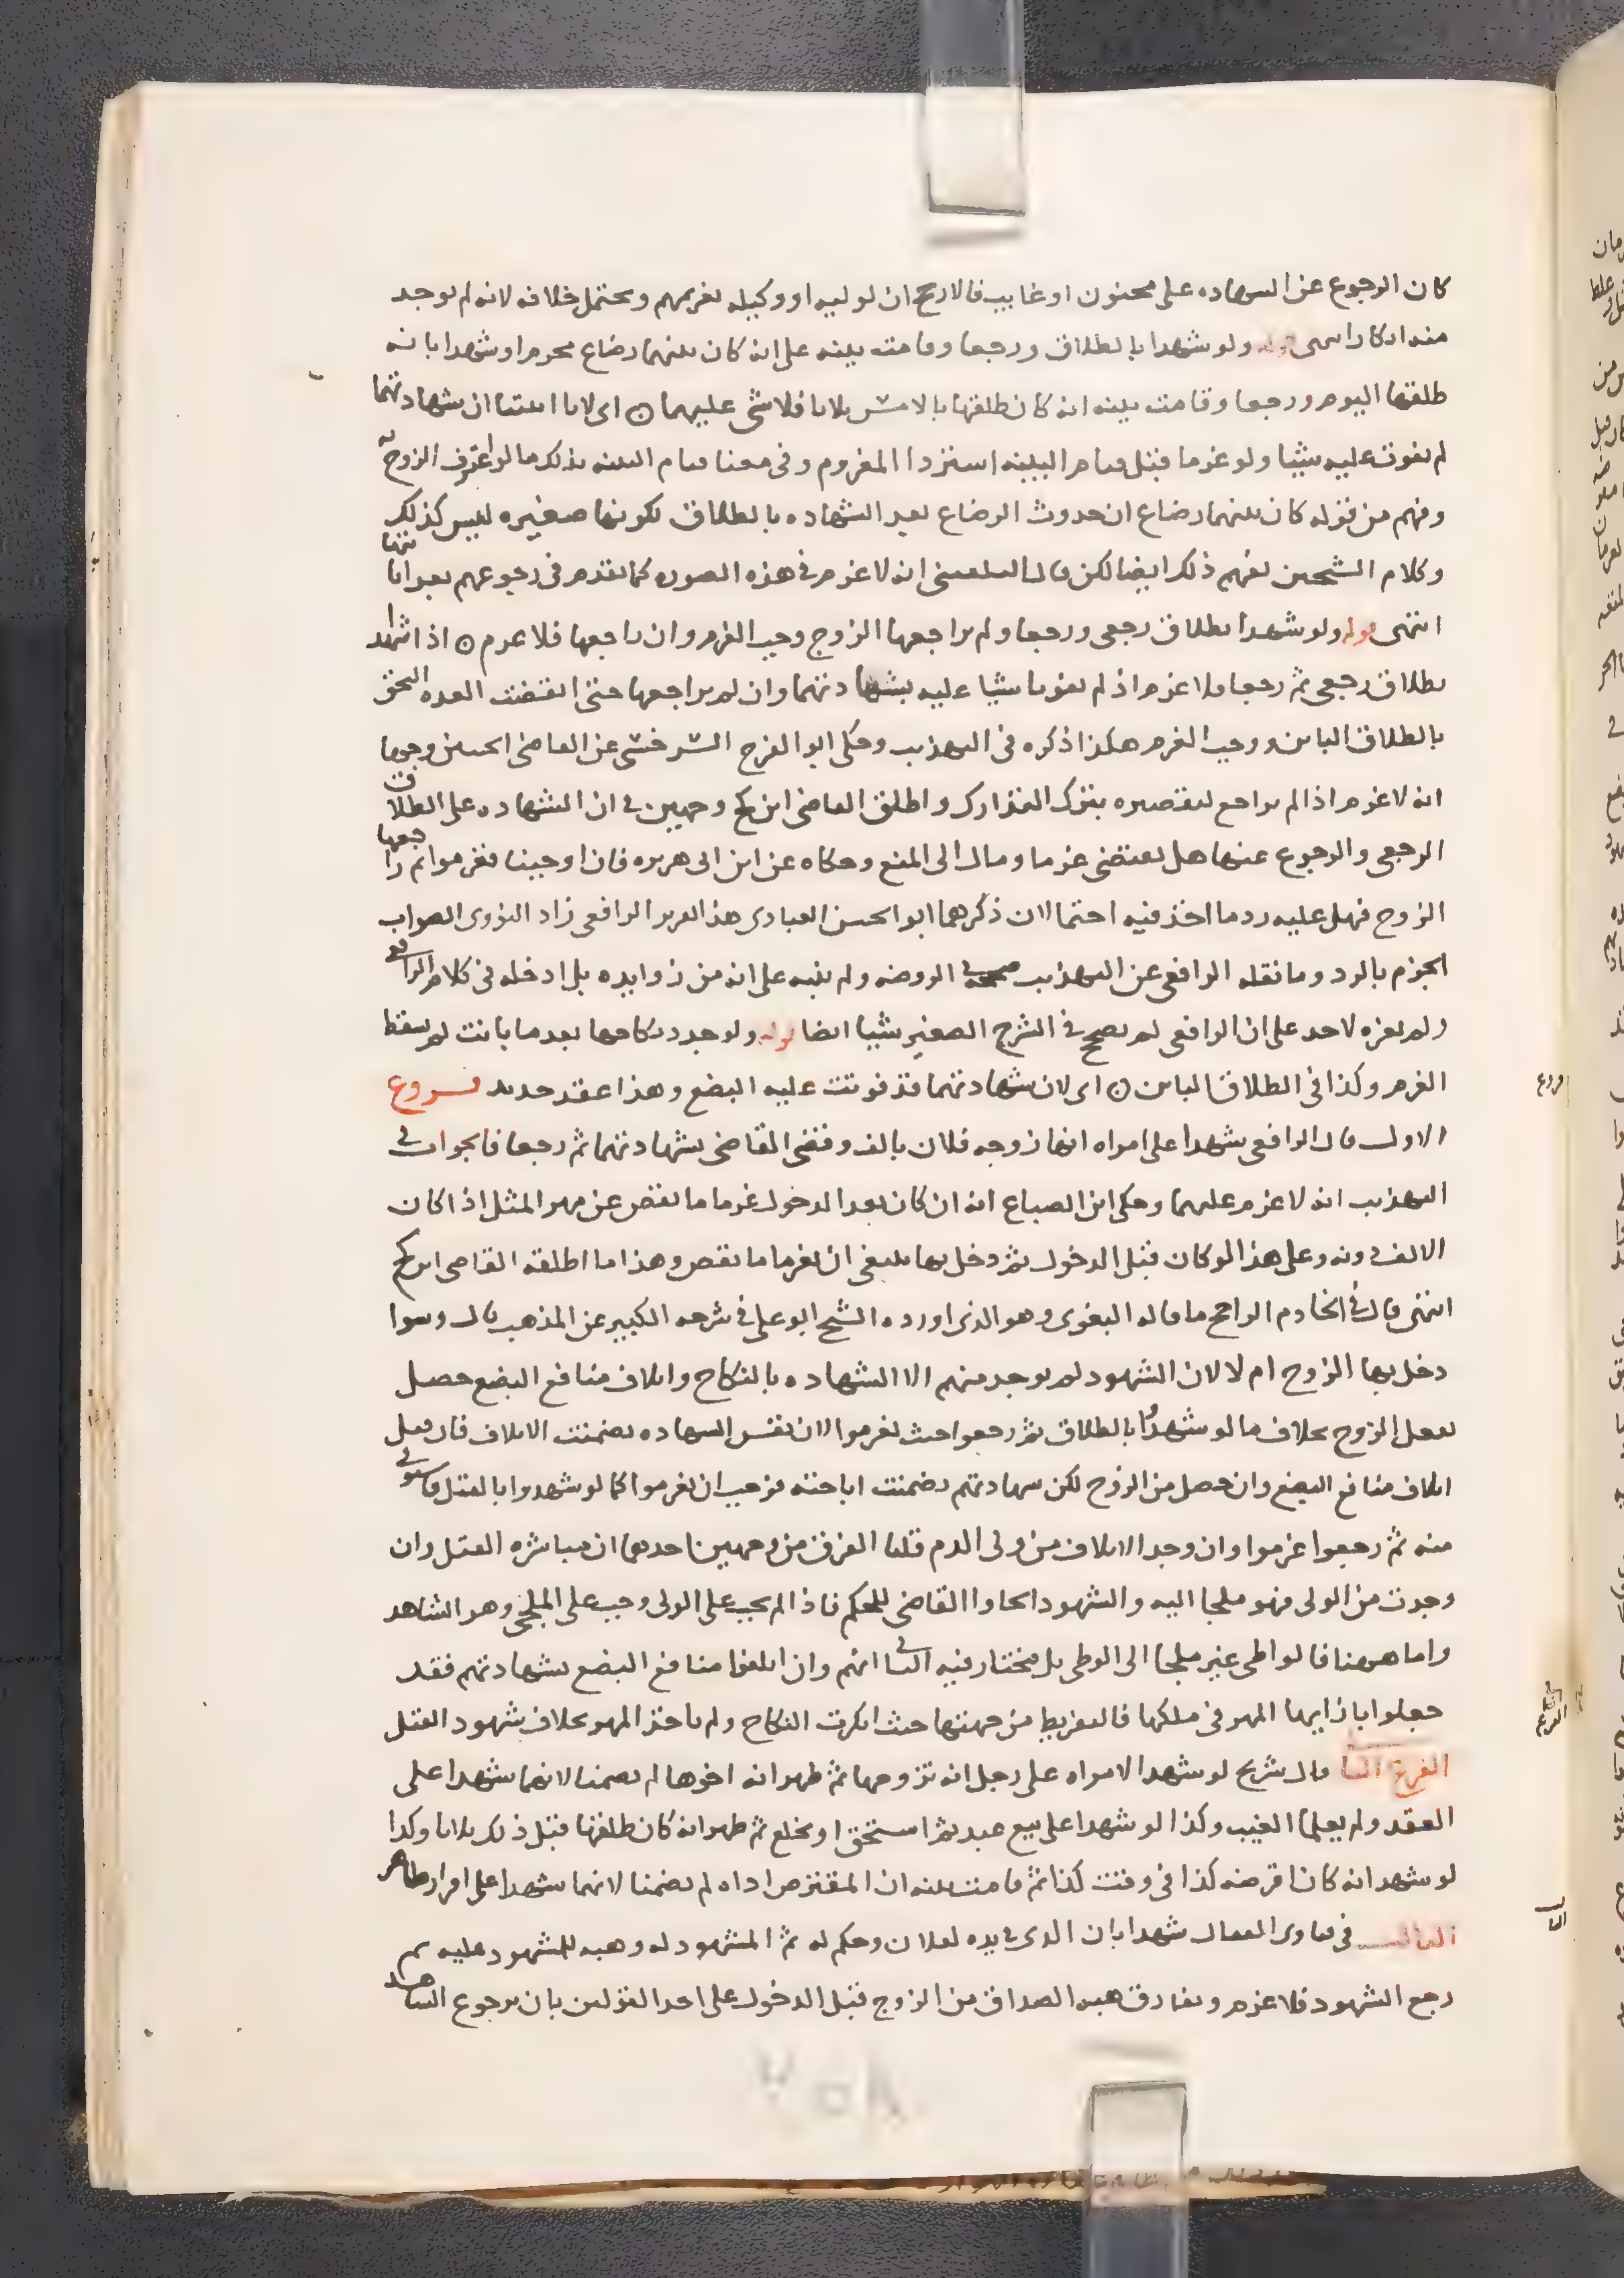 كان الرجوع عن الشهاده على مجنون او غايب فالارجح ان لوليه او وكيله تغريمهم ويحتمل خلافه لانه لم يوجد
منه انكار انتهى قوله ولو شهدا بالطلاق ورجعا وقامت بينه على انه كان بينهما رضاع محرم او شهدا بانه
طلقها اليوم ورجعا وقامت بينه انه كان طلقها بالامس ثلاثا فلا شى عليهما ن اى لانا تبينا ان شهادتهما
لم تفوت عليه شيئا ولو غرما قبل قيام البينه استردا المغروم وفى معنا قيام البينه بذلك ما لو اعترف الزوج به
وفهم من قوله كان بينهما رضاع ان حدوث الرضاع بعد الشهاده بالطلاق لكونها صغيره ليس كذلك
وكلام الشيخين يفهم ذلك ايضا لكن قال البلقينى انه لا غرم فى هذه الصوره كما تقدم فى رجوعهم بعد ابانتها
انتهى قوله ولو شهدا بطلاق رجعى ورجعا ولم يراجعها الزوج وجب الغرم وان راجعها فلا غرم ن اذا شهدا
بطلاق رجعى ثم رجعا فلا غرم اذ لم يفوتا شيا عليه بشهادتهما وان لم يراجعها حتى انقضت العده التحق
بالطلاق الباين ووجب الغرم هكذا ذكره فى التهذيب وحكى ابو الفرج السرخسى عن القاضى الحسين وجها
انه لا غرم اذا لم يراجع لتقصيره بترك التدارك واطلق القاضى ابن كج وجهين فى ان الشهاده على الطلاق
الرجعى والرجوع عنها هل يقتضى غرما ومال الى المنع وحكاه عن ابن ابى هريره فان اوجبنا فغرموا ثم راجعها
الزوج فهل عليه رد ما اخذ فيه احتمالان ذكرهما ابو الحسن العبادى هذا لفظ الرافعى زاد النووى الصواب
الجزم بالرد وما نقله الرافعى عن التهذيب صححه فى الروضه ولم ينبه على انه من زوايده بل ادخله فى كلام الرافعى
ولم يعزه لاحد على ان الرافعى لم يصحح فى الشرح الصغير شيئا ايضا قوله ولو جدد نكاحها بعد ما بانت لم يسقط
الغرم وكذا فى الطلاق الباين ن اى لان شهادتهما قد فوتت عليه البضع وهذا عقد جديد فروع
الاول قال الرافعى شهدا على امراه انها زوجه فلان بالف وقضى القاضى بشهادتهما ثم رجعا فالجواب فى
التهذيب انه لا غرم عليهما وحكى ابن الصباغ انه ان كان بعد الدخول غرما ما نقص عن مهر المثل اذا كان
الالف دونه وعلى هذا لو كان قبل الدخول ثم دخل بها ينبغى ان يغرما ما نقص وهذا ما اطلقه القاضى ابن كج
انتهى قال فى الخادم الراجح ما قاله البغوى وهو الذى اورده الشيخ ابو على فى شرحه الكبير عن المذهب قال وسوا
دخل بها الزوج ام لا لان الشهود لم يوجد منهم الا الشهاده بالنكاح واتلاف منافع البضع حصل
بفعل الزوج بخلاف ما لو شهدوا بالطلاق ثم رجعوا حيث يغرموا لان نفس الشهاده تضمنت الاتلاف فان قيل
اتلاف منافع البضع وان حصل من الزوج لكن شهادتهم تضمنت اباحته فوجب ان يغرموا كما لو شهدوا بالقتل فاستوفى
منه ثم رجعوا غرموا وان وجد الاتلاف من ولى الدم قلنا الفرق من وجهين احدهما ان مباشره القتل وان
وجدت من الولى فهو ملجا اليه والشهود الجاوا القاضى للحكم فاذا لم يجب على الولى وجب على الملجئ وهو الشاهد
واما ههنا فالواطى غير ملجا الى الوطى بل مختار فيه الثانى انهم وان اتلفوا منافع البضع بشهادتهم فقد
جعلوا بازايها المهر فى ملكها فالتفريط من جهتها حيث انكرت النكاح ولم تاخذ المهر بخلاف شهود القتل
الفرع الثانى قال شريح لو شهدا لامراه على رجل انه تزوجها ثم ظهر انه اخوها لم يضمنا لانهما شهدا على
العقد ولم يعلما الغيب وكذا لو شهدا على بيع عبد ثم استحق او بخلع ثم ظهر انه كان طلقها قبل ذلك ثلاثا وكذا
لو شهدا انه كان اقرضه كذا فى وقت كذا ثم قامت بينه ان المقترض اداه لم يضمنا لانهما شهدا على اقرار ظاهر
الثالث فى فتاوى القفال شهدا بان الذى فى يده لفلان وحكم له ثم المشهود له وهبه للمشهود عليه ثم
رجع الشهود فلا غرم وتفارق هبه الصداق من الزوج قبل الدخول على احد القولين بان برجوع الشاهد
فروع
الثالث